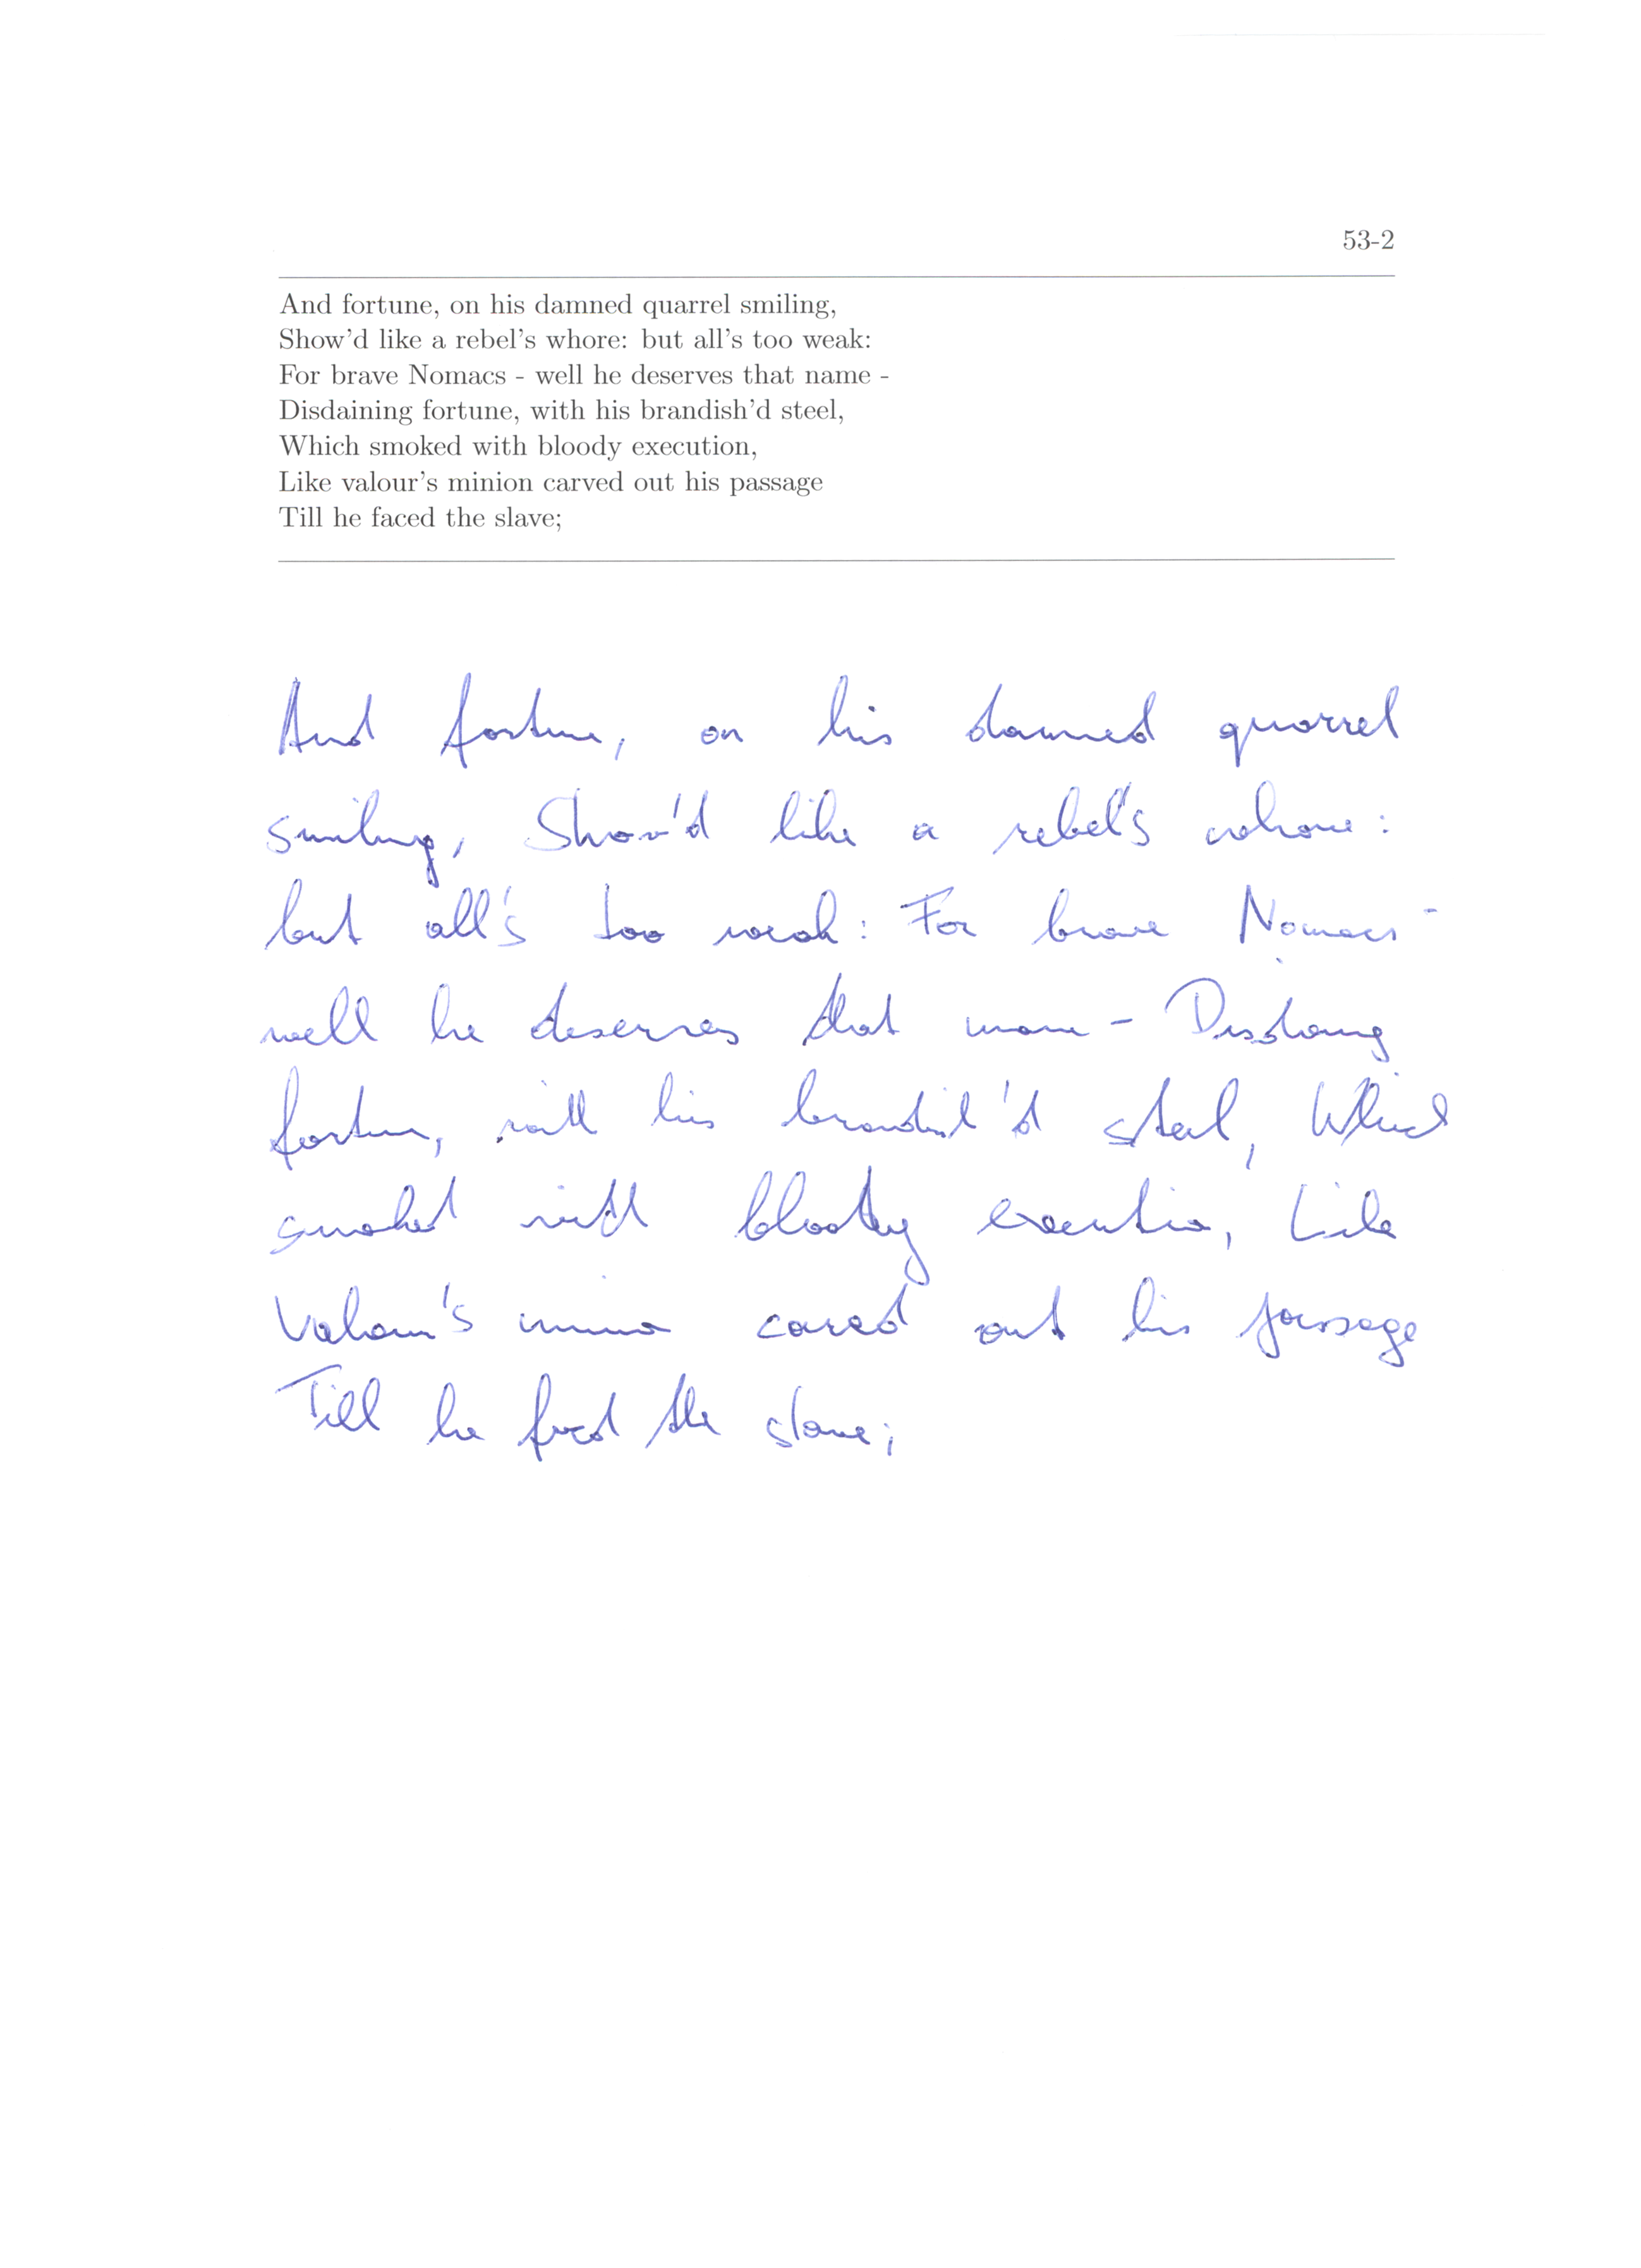 53-2
And fortune, on his damned quarrel smiling,
Show'd like a rebel's whore: but all's too weak:
For brave Nomacs - well he deserves that name -
Disdaining fortune, with his brandish'd steel,
Which smoked with bloody execution,
Like valour's minion carved out his passage
Till he faced the slave;
And fortune, on his damned quarrel
smiling, Show'd like a rebel's whore:
but all's too weak: For brave Nomacs -
well he deserves that name - Disdaining
fortune, with his brandish'd steel, Which
smoked with bloody execution, Like
Valour's minion carved out his passage
Till he faced the slave;